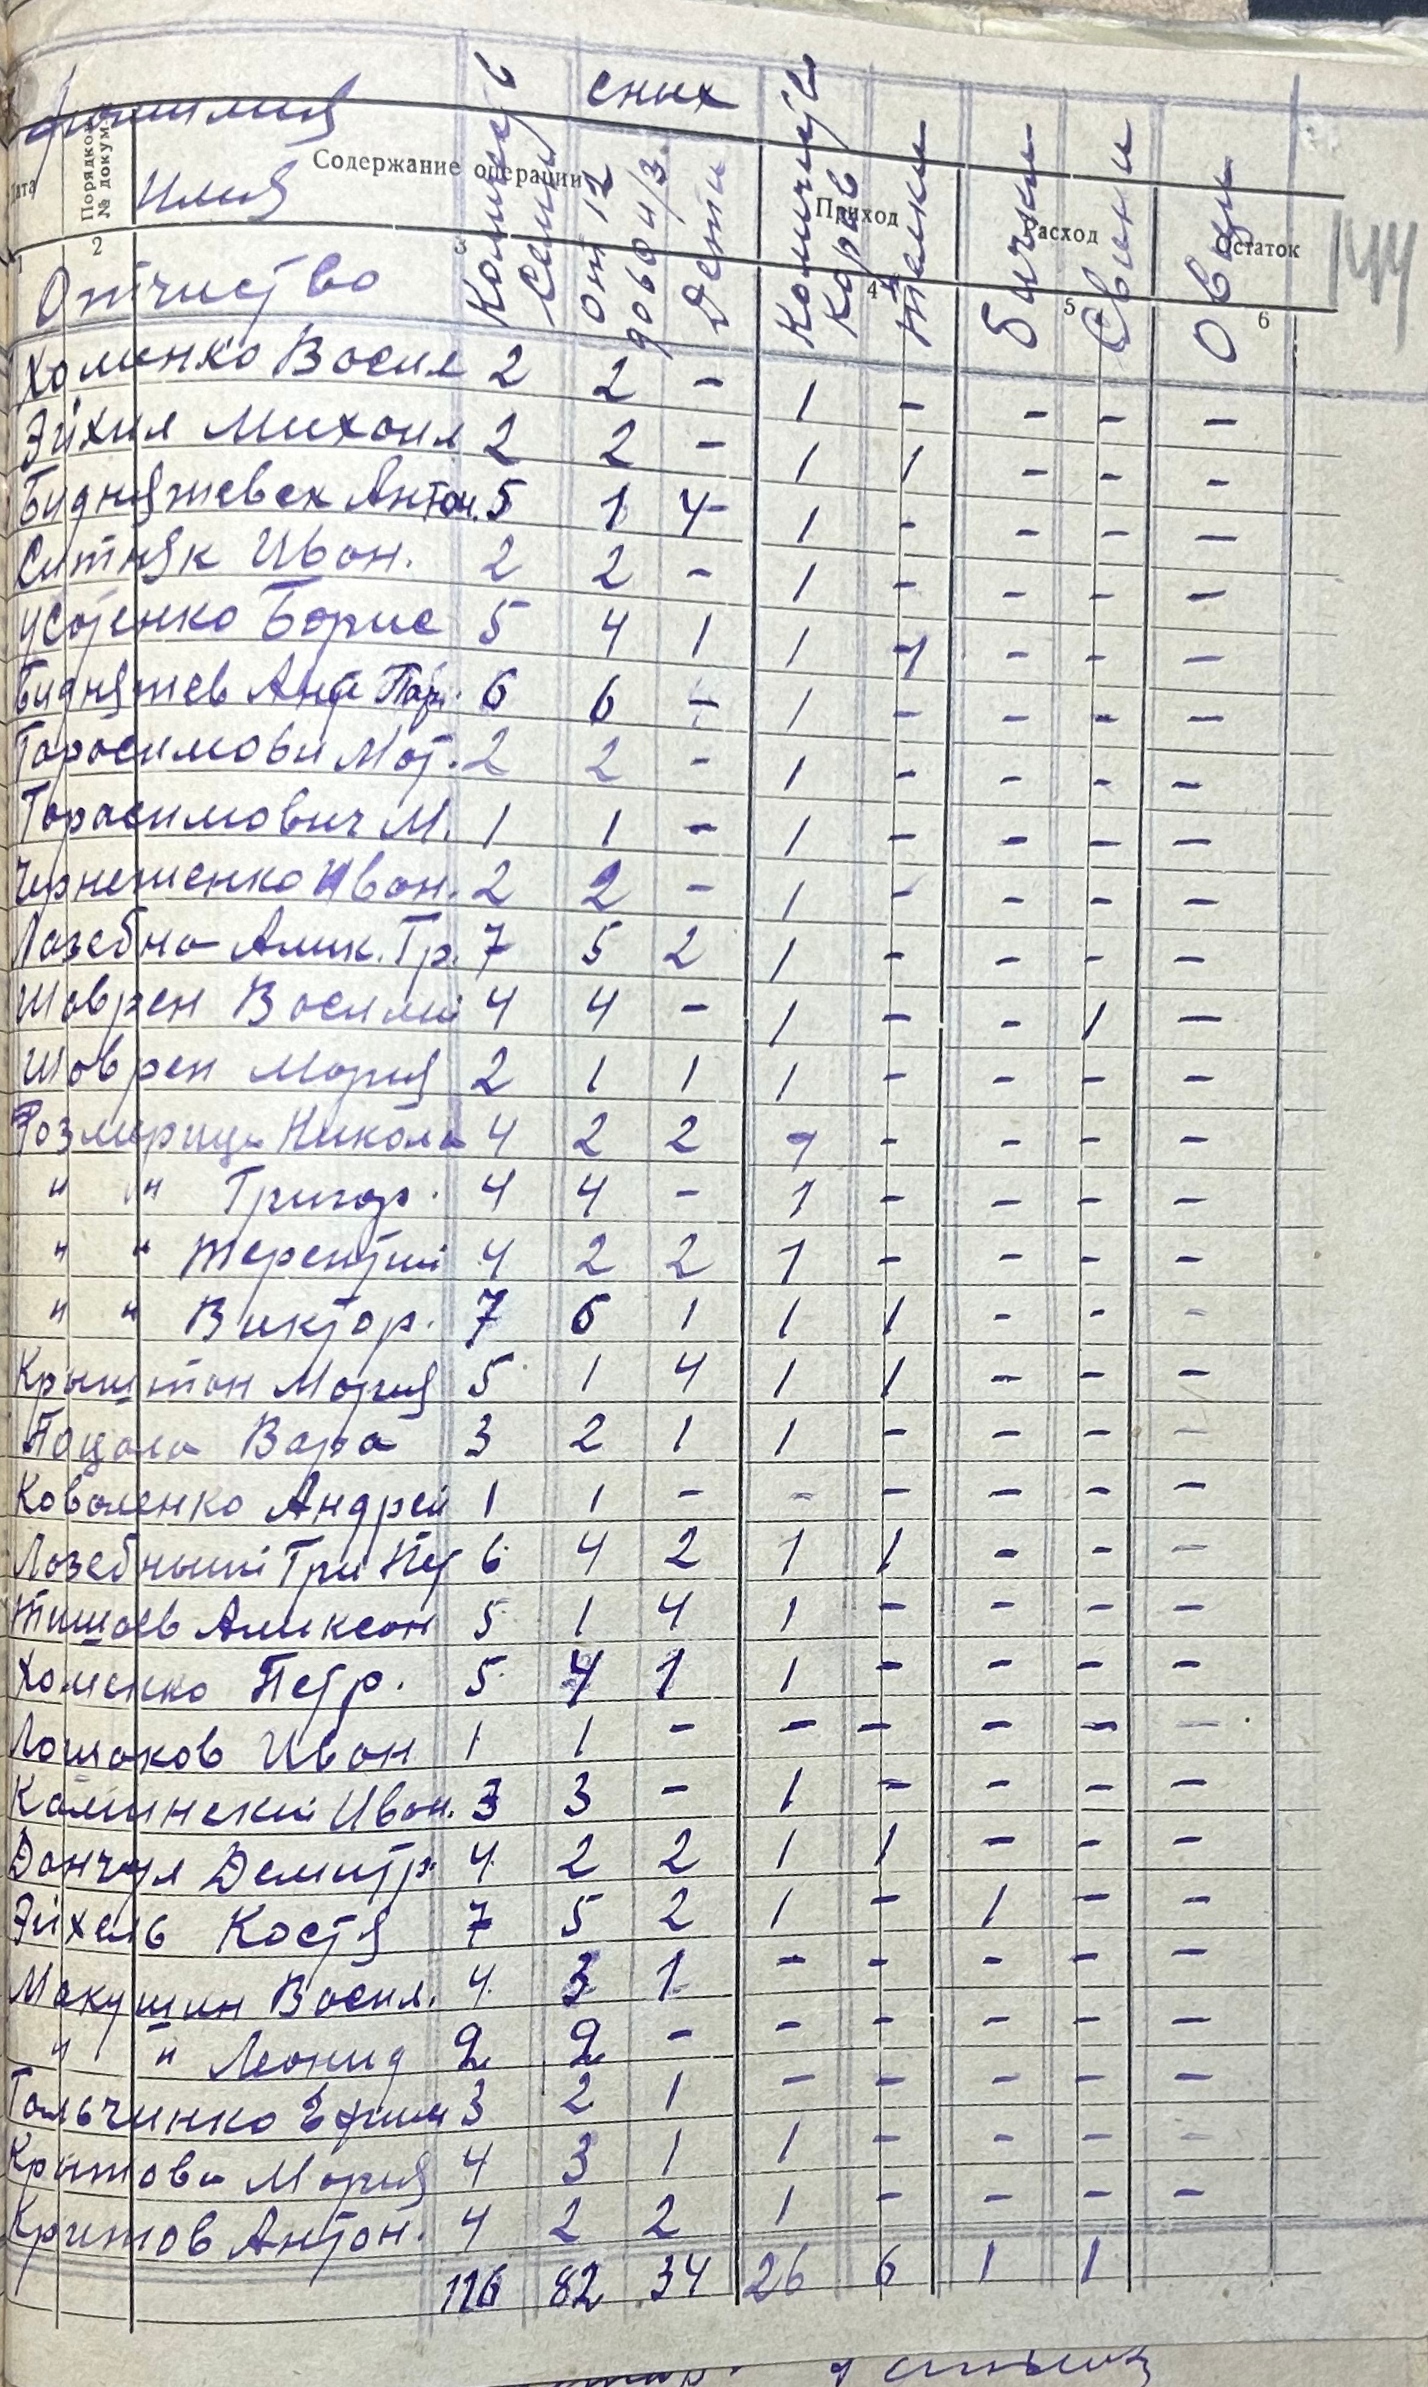 Фамилия
Имия
Отчиство
Количес в семии
с них
от 12 до 60 ч/з
дети
Количес Коров
телки
бички
Свини
Овци
144
Дата
Порядков. № докум.
Содержание операции
Приход
Расход
Остаток
1 2 3 4 5 6
Хоменко Васил 2 2 - 1 - - - -
Эйхил Михаил 2 2 - 1 1 - - -
Бидняжевск Антон. 5 1 4 1 - - - -
Ситняк Иван. 2 2 - 1 - - - -
Усотенко Борис 5 4 1 1 1 - - -
Бидняжев Ант Пар. 6 6 - 1 - - - -
Тарасимови Мот. 2 2 - 1 - - - -
Тарасимович М. 1 1 - 1 - - - -
Чернешенко Иван. 2 2 - 1 - - - -
Лазебна Алик. Гр. 7 5 2 1 - - - -
Шаврен Василий 4 4 - 1 - - 1 -
Шаврен Мария 2 1 1 1 - - - -
Розмерица Никола 4 2 2 1 - - - -
" " Григор. 4 4 - 1 - - - -
" " терентий 4 2 2 1 - - - -
" " Виктор. 7 6 1 1 1 - - -
Крыштан Мария 5 1 4 1 1 - - -
Пацала Вара 3 2 1 1 - - - -
Коваленко Андрей 1 1 - - - - - -
Лазебный Гри Пет 6 4 2 1 1 - - -
тишаев Аликсан 5 1 4 1 - - - -
Хоменко Петр. 5 4 1 1 - - - -
Лошаков Иван 1 1 - - - - - -
Каминский Иван. 3 3 - 1 - - - -
Данчул Демитр. 4 2 2 1 1 - - -
Эйхель Костя 7 5 2 1 - 1 - -
Макушин Васил. 4 3 1 - - - - -
" " Леонид 2 2 - - - - - -
Гальчинко Ефим 3 2 1 - - - - -
Критова Мария 4 3 1 1 - - - -
Критов Антон. 4 2 2 1 - - - -
116 82 34 26 6 1 1